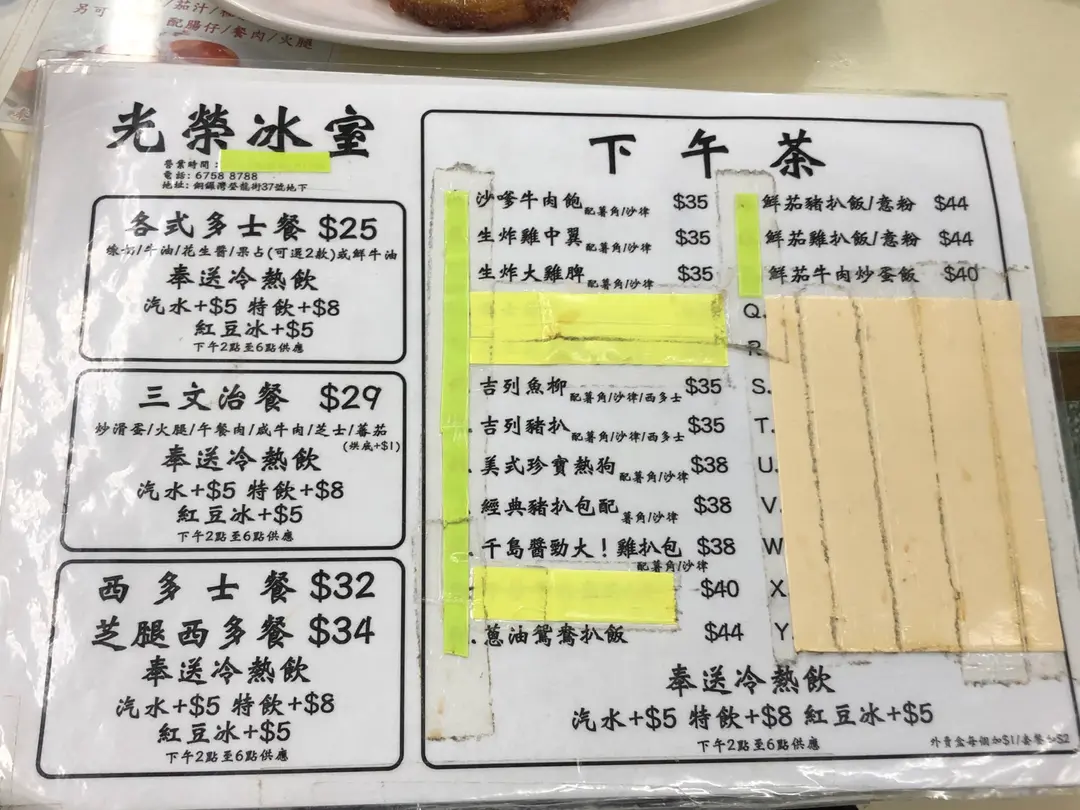 另可
茄汁/
配腸仔/餐肉/火腿
光榮冰室
營業時間：
電話：6758 8788
地址：銅鑼灣登龍街37號地下
各式多士餐 $25
牛油/花生醬/果占(可選2款)或鮮牛油
奉送冷熱飲
汽水+$5 特飲+$8
紅豆冰+$5
下午2點至6點供應
三文治餐 $29
炒滑蛋/火腿/午餐肉/咸牛肉/芝士/蕃茄
(烘底+$1)
奉送冷熱飲
汽水+$5 特飲+$8
紅豆冰+$5
下午2點至6點供應
西多士餐 $32
芝腿西多餐 $34
奉送冷熱飲
汽水+$5 特飲+$8
紅豆冰+$5
下午2點至6點供應
下午茶
沙嗲牛肉飽 配薯角/沙律 $35
生炸雞中翼 配薯角/沙律 $35
生炸大雞脾 配薯角/沙律 $35
吉列魚柳 配薯角/沙律/西多士 $35
吉列豬扒 配薯角/沙律/西多士 $35
美式珍寶熱狗 配薯角/沙律 $38
經典豬扒包配 薯角/沙律 $38
千島醬勁大！雞扒包 $38
配薯角/沙律
$40
蔥油鴛鴦扒飯 $44
鮮茄豬扒飯/意粉 $44
鮮茄雞扒飯/意粉 $44
鮮茄牛肉炒蛋飯 $40
Q.
R
S.
T.
U.
V.
W
X
Y.
奉送冷熱飲
汽水+$5 特飲+$8 紅豆冰+$5
下午2點至6點供應
外賣盒每個加$1/套餐加$2